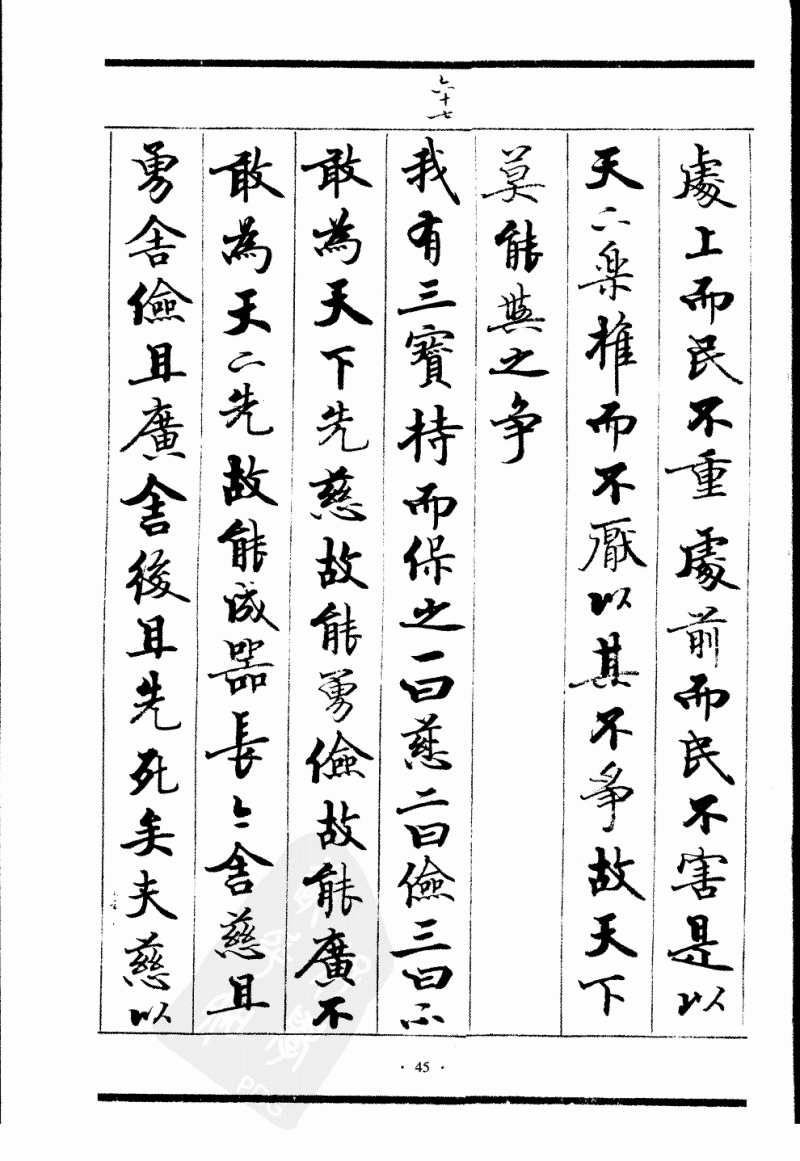 六十七
處上而民不重處前而民不害是以
天下樂推而不厭以其不爭故天下
莫能與之争
我有三寶持而保之一曰慈二曰儉三曰不
敢為天下先慈故能勇儉故能廣不
敢為天下先故能成器長今舍慈且
勇舍儉且廣舍後且先死矣夫慈以
· 45 ·